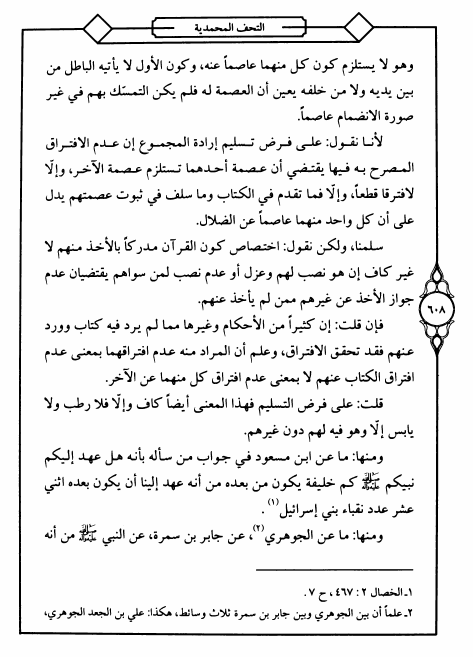 التحف المحمدية
وهو لا يستلزم كون كل منهما عاصماً عنه، وكون الأول لا يأتيه الباطل من
بين يديه ولا من خلفه يعين أن العصمة له فلم يكن التمسّك بهم في غير
صورة الانضمام عاصماً.
لأنـا نقـول: علـى فـرض تسـليم إرادة المجمـوع إن عـدم الافتـراق
المصرح بـه فيهـا يقتضـي أن عصمـة أحـدهما تستلزم عصمـة الآخـر، وإلّا
لافترقا قطعاً، وإلّا فما تقدم في الكتاب وما سلف في ثبوت عصمتهم يدل
على أن كل واحد منهما عاصماً عن الضلال.
سلمنا، ولكن نقول: اختصاص كون القرآن مدركاً بالأخذ منهم لا
غير كاف إن هو نصب لهم وعزل أو عدم نصب لمن سواهم يقتضيان عدم
جواز الأخذ عن غيرهم ممن لم يأخذ عنهم.
فإن قلت: إن كثيراً من الأحكام وغيرها مما لم يرد فيه كتاب وورد
عنهم فقـد تحقـق الافتراق، وعلـم أن المراد منـه عدم افتراقهمـا بمعنـى عـدم
افتراق الكتاب عنهم لا بمعنى عدم افتراق كل منهما عن الآخر.
قلت: على فرض التسليم فهذا المعنى أيضاً كاف وإلّا فلا رطب ولا
يابس إلّا وهو فيه لهم دون غيرهم.
ومنها: ما عن ابن مسعود في جواب من سأله بأنه هل عهد إليكم
نبيكم ﷺ كم خليفة يكون من بعده من أنه عهد إلينا أن يكون بعده اثني
عشر عدد نقباء بني إسرائيل(١).
ومنها: ما عن الجوهري(٢)، عن جابر بن سمرة، عن النبي ﷺ من أنه
١ـ الخصال ٢: ٤٦٧، ح ٧.
٢ـ علماً أن بين الجوهري وبين جابر بن سمرة ثلاث وسائط، هكذا: علي بن الجعد الجوهري،
٦٠٨